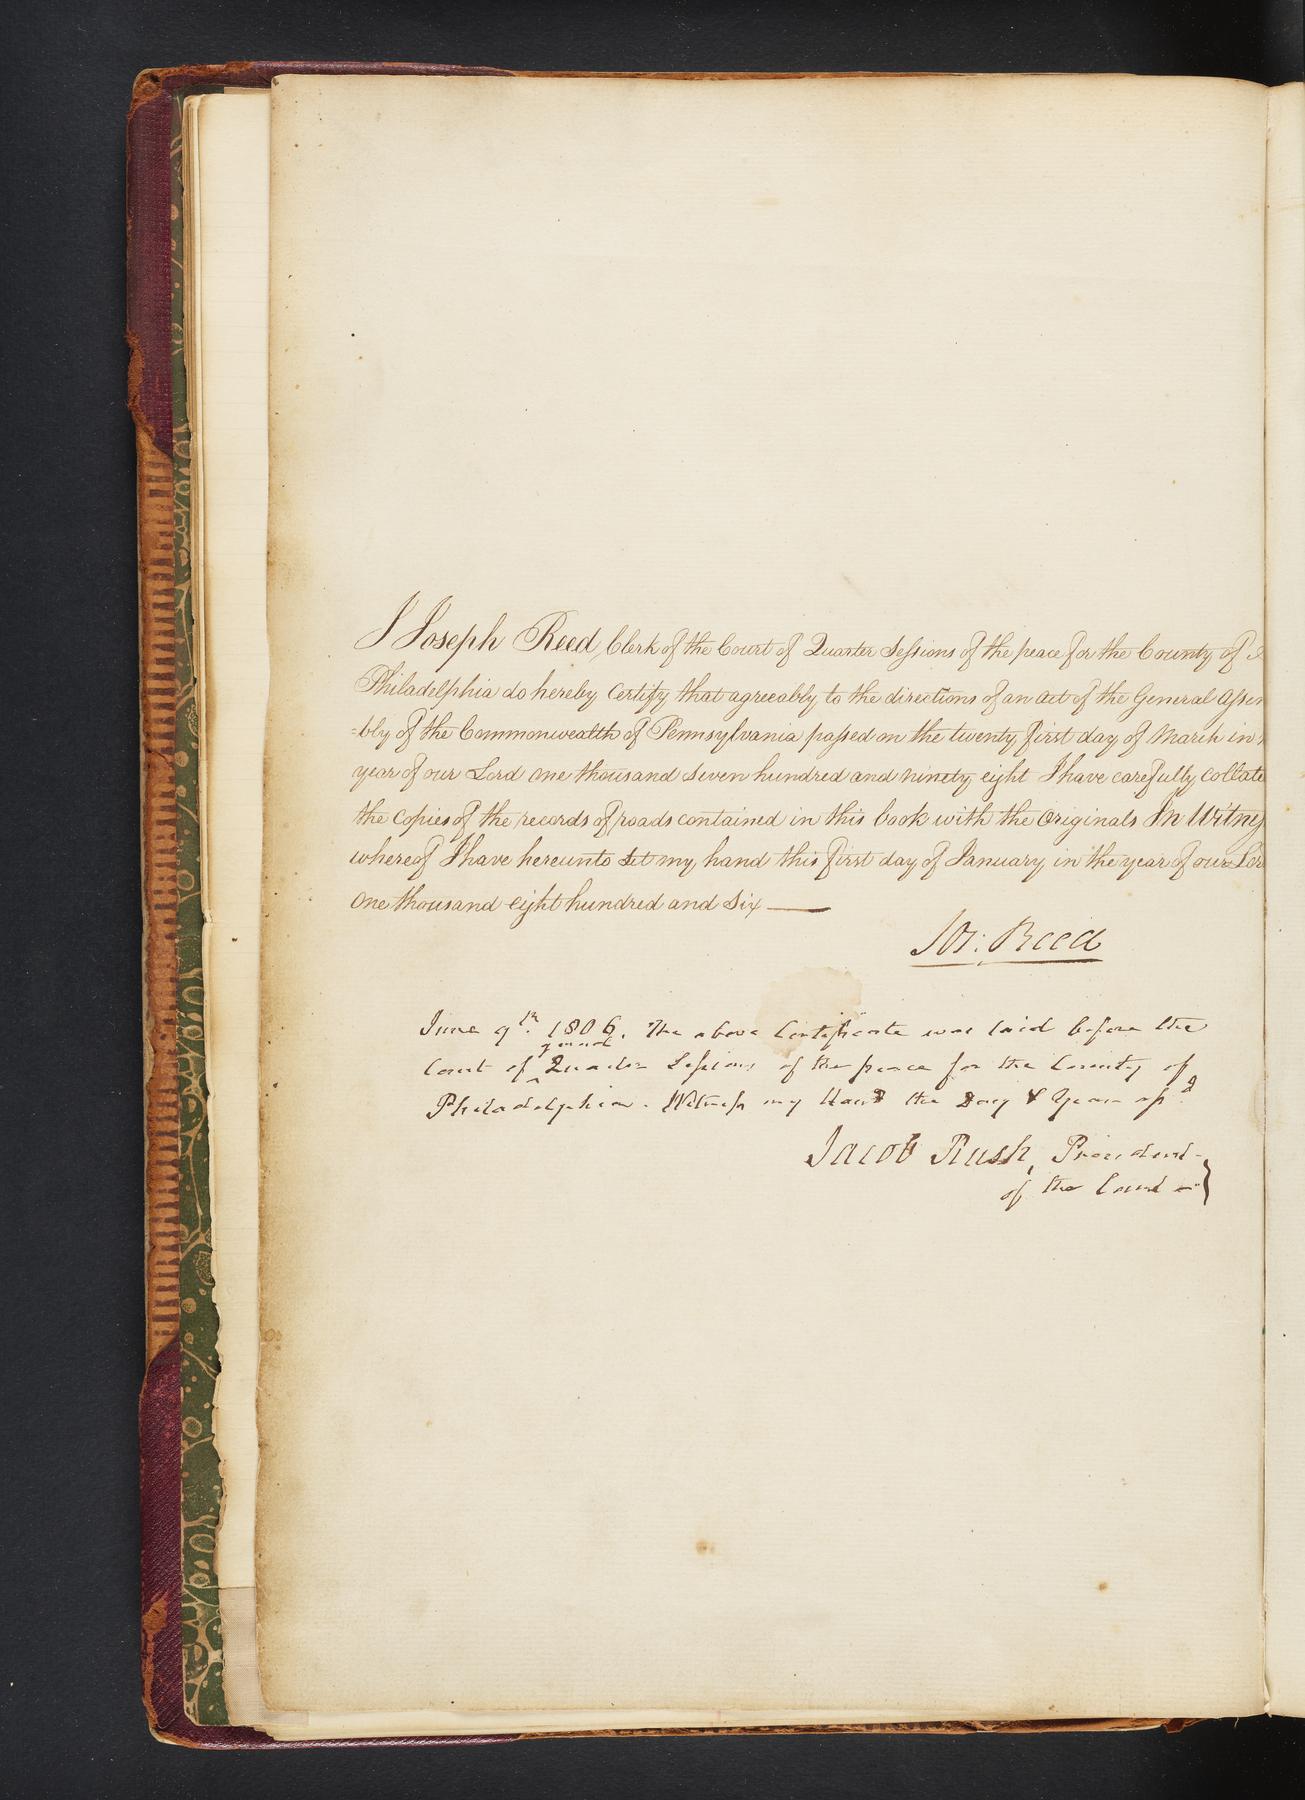 I Joseph Reed Clerk of the Court of Quarter Sessions of the peace for the County of
Philadelphia do hereby Certify that agreeably to the directions of an act of the General Assem
=bly of the Commonwealth of Pennsylvania passed on the twenty first day of March in
year of our Lord one thousand seven hundred and ninety eight I have carefully collate
the copies of the records of roads contained in this book with the Originals In Witness
whereof I have hereunto set my hand this first day of January in the year of our Lor
one thousand eight hundred and six
Jos: Reed
June 9th. 1806. The above Certificate was laid before the
general
Court of ^ Quarter Sessions of the peace for the County of
Philadelphia. Witness my Hand the Day & Year afsd.
Jacob Rush, President
of the Court